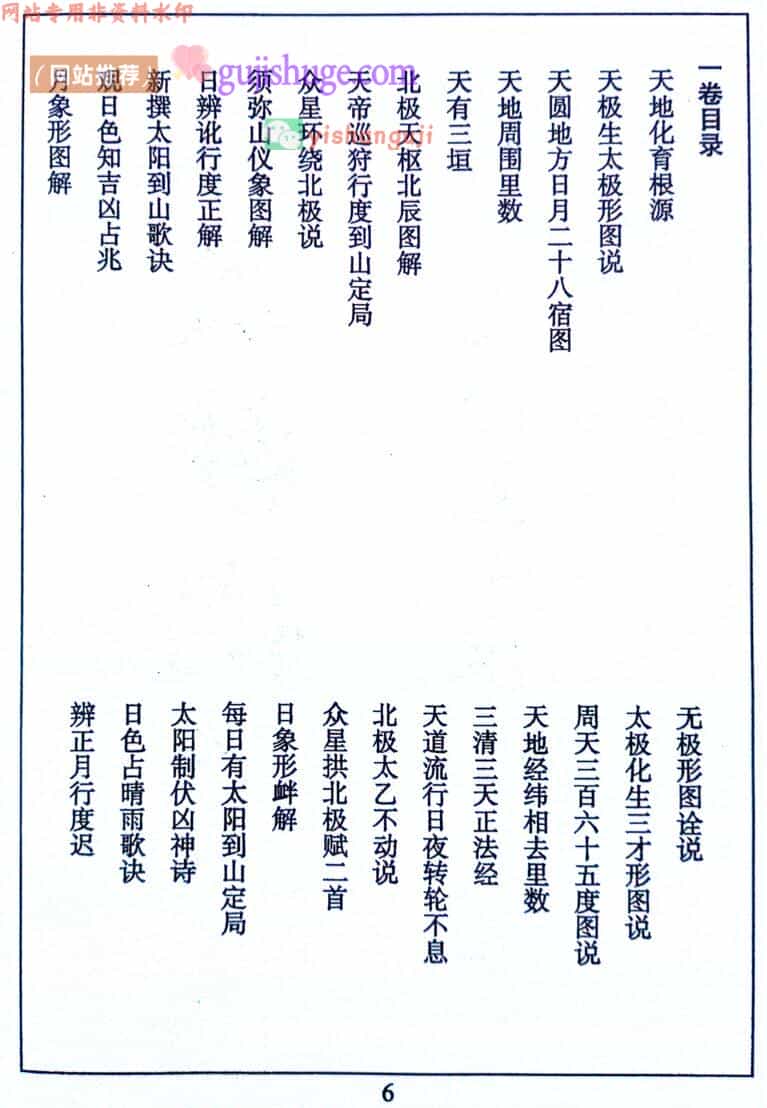 网站专用非资料水印
（网站推荐）
guijishuge.com
yishanguji
一卷目录
天地化育根源
无极形图诠说
天极生太极形图说
太极化生三才形图说
天圆地方日月二十八宿图
周天三百六十五度图说
天地周围里数
天地经纬相去里数
天有三垣
三清三天正法经
北极天枢北辰图解
天道流行日夜转轮不息
天帝巡狩行度到山定局
北极太乙不动说
众星环绕北极说
众星拱北极赋二首
须弥山仪象图解
日象形衅解
日辨讹行度正解
每日有太阳到山定局
新撰太阳到山歌诀
太阳制伏凶神诗
观日色知吉凶占兆
日色占晴雨歌诀
月象形图解
辨正月行度迟
6